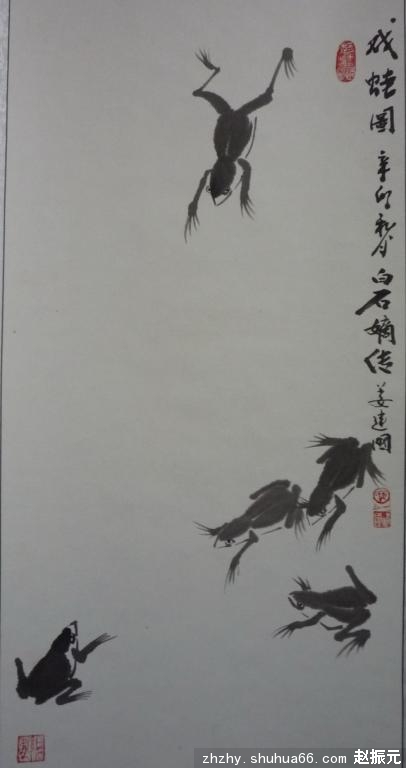 戏蛙图
辛卯秋月白石嫡传姜建国
zhzhy.shuhua66.com 赵振元